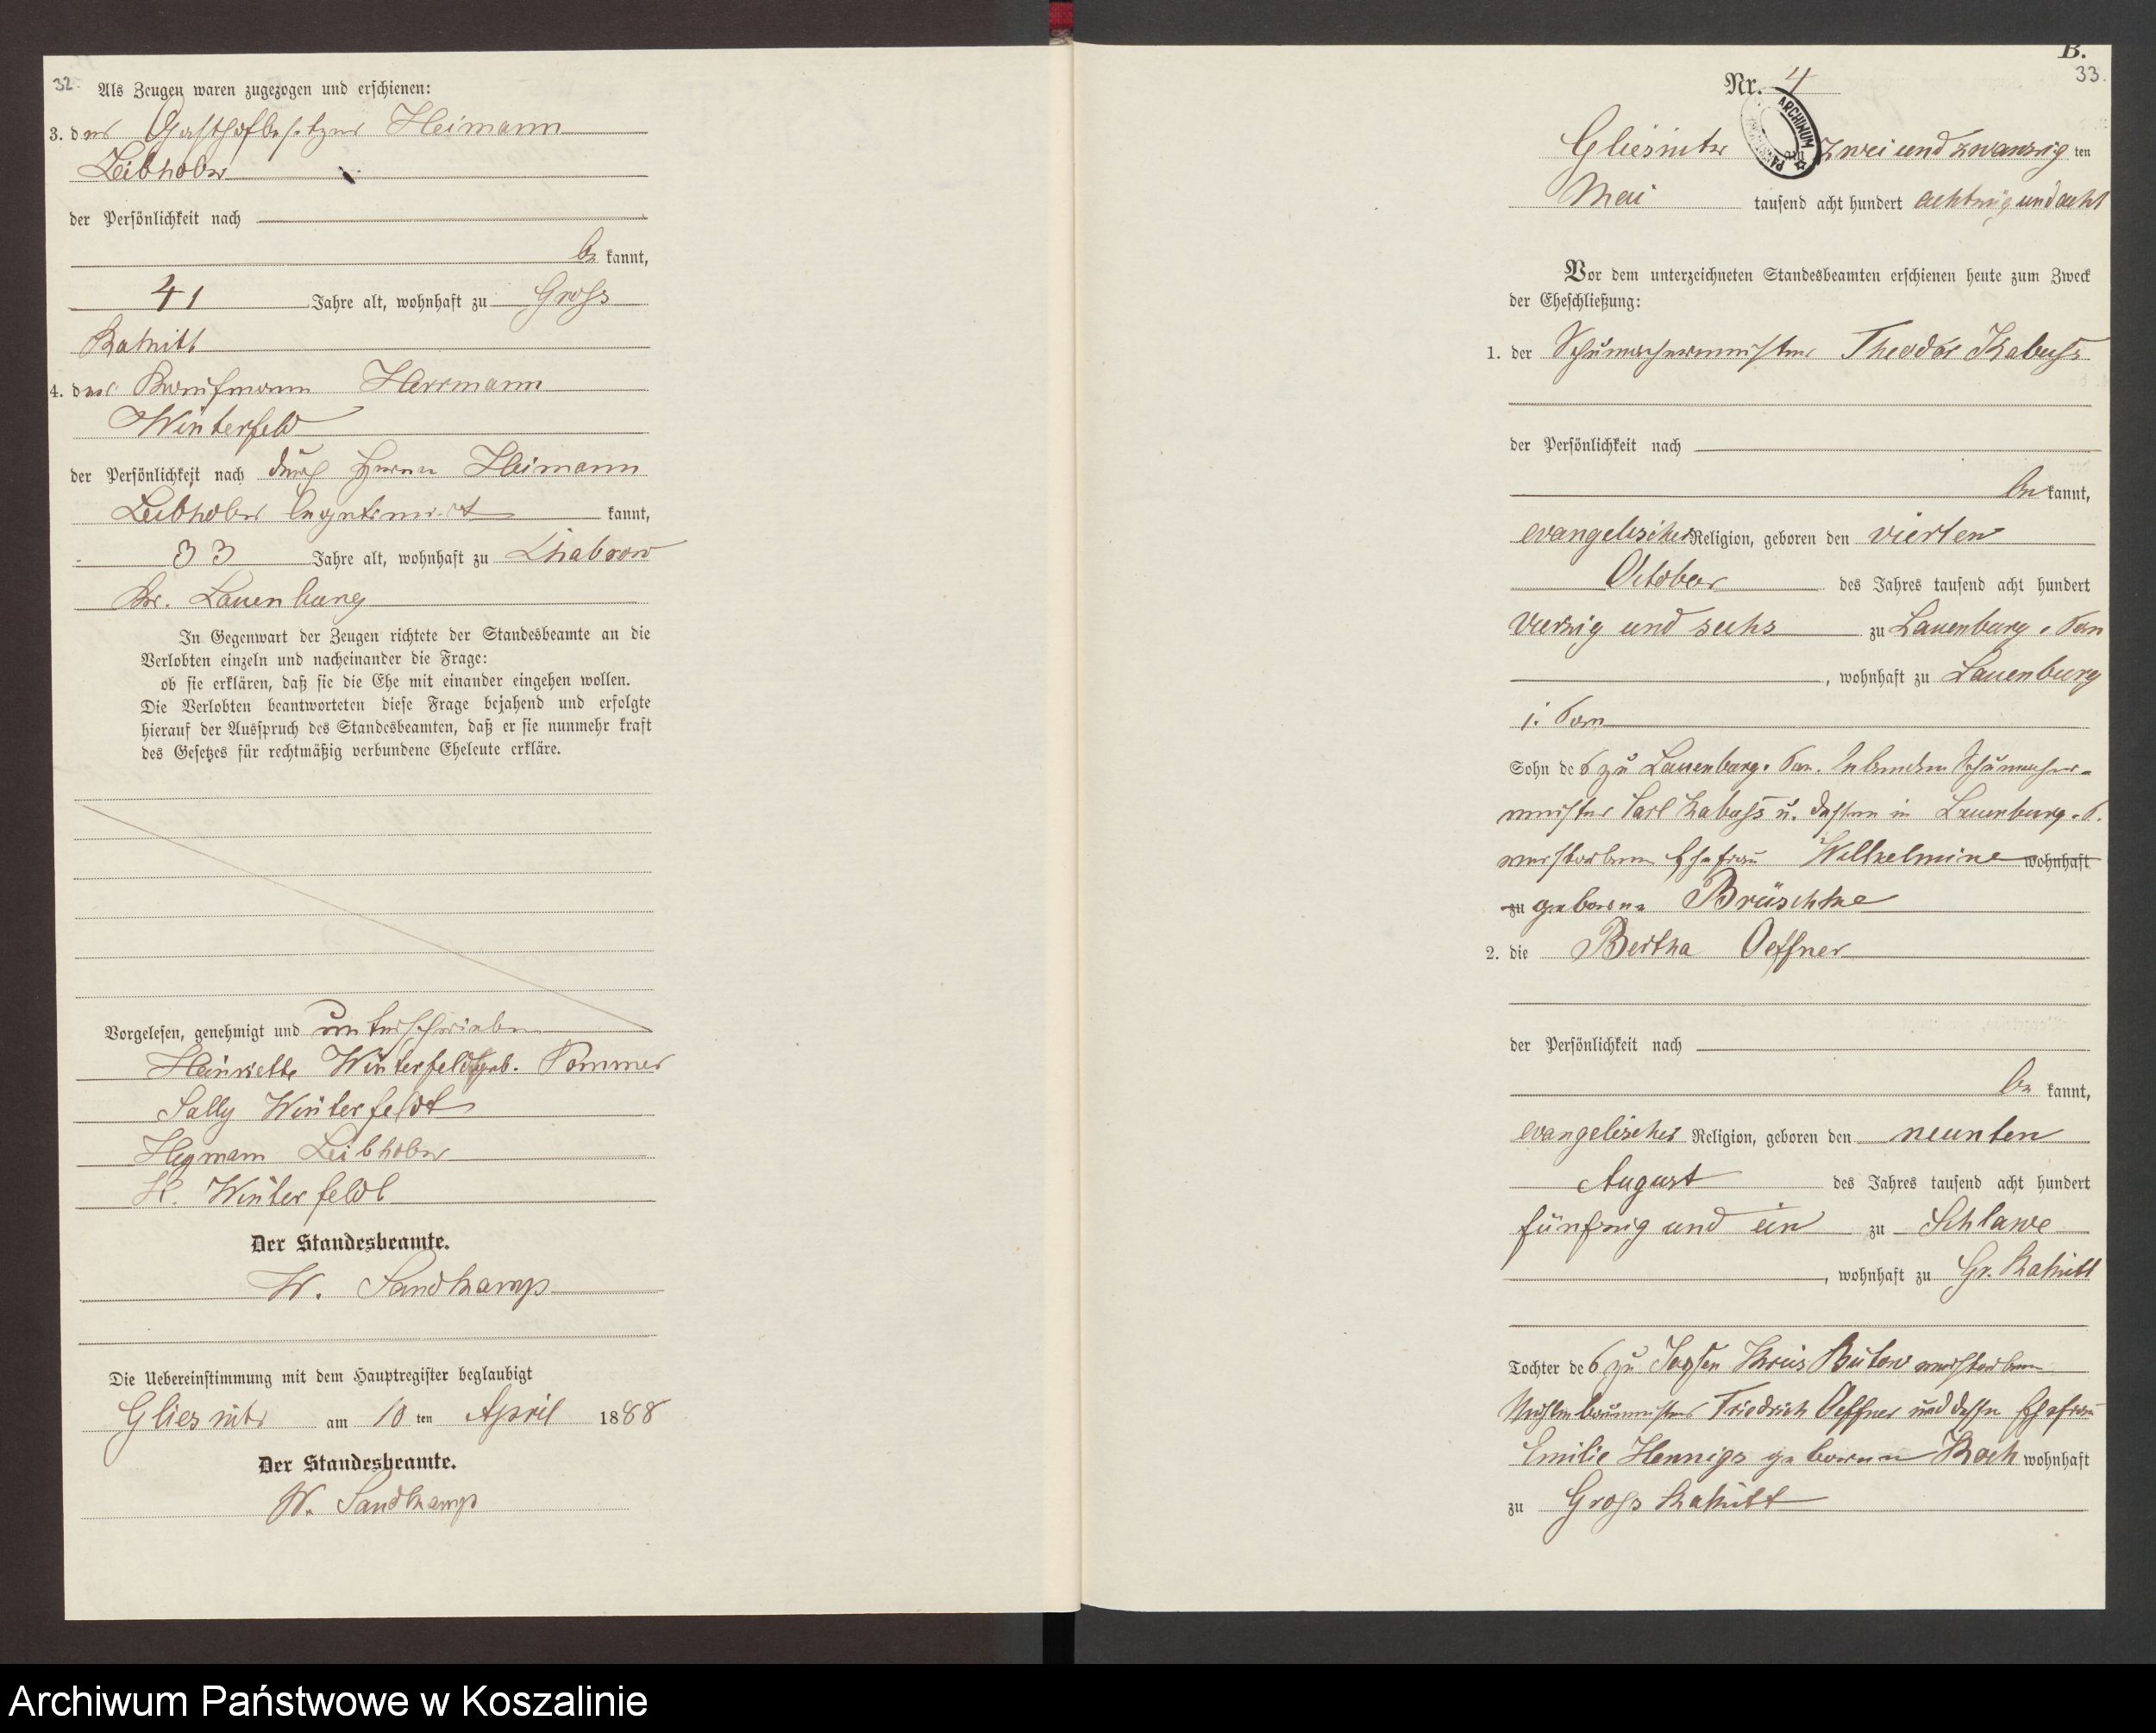 32.
Als Zeugen waren zugezogen und erschienen:
3. der Gasthofbesitzer Heimann
Leibholz
der Persönlichkeit nach
be kannt,
41 Jahre alt, wohnhaft zu Gross
Rakitt
4. der Kaufmann Herrmann
Winterfeld
der Persönlichkeit nach durch Herrn Heimann
kannt,
33 Jahre alt, wohnhaft zu Chabrow
Kr. Lauenburg
In Gegenwart der Zeugen richtete der Standesbeamte an die
Verlobten einzeln und nacheinander die Frage:
ob sie erklären, daß sie die Ehe mit einander eingehen wollen.
Die Verlobten beantworteten diese Frage bejahend und erfolgte
hierauf der Ausspruch des Standesbeamten, daß er sie nunmehr kraft
des Gesetzes für rechtmäßig verbundene Eheleute erkläre.
Vorgelesen, genehmigt und unterschrieben
Heinriette Winterfeldt geb. Pommer
Sally Winterfeldt
H. Winterfeldt
Der Standesbeamte.
W. Sandkamp
Die Uebereinstimmung mit dem Hauptregister beglaubigt
Gliesnitz am 10 ten April 1888
Der Standesbeamte.
W. Sandkamp
B.
33.
Nr. 4
ARCHIWUM
Gliesnitz am zwei und zwanzig ten
Mai tausend acht hundert achtzig und acht
Vor dem unterzeichneten Standesbeamten erschienen heute zum Zweck
der Eheschließung:
1. der Schumachermeister Theodor Kabuss
der Persönlichkeit nach
be kannt,
evangelischer Religion, geboren den vierten
October des Jahres tausend acht hundert
vierzig und sechs zu Lauenburg i. Pom
, wohnhaft zu Lauenburg
i. Pom
Sohn des zu Lauenburg i. Pom. lebenden Schumacher-
meister Carl Kabuss u. dessen in Lauenburg i. P.
verstorbenen Ehefrau Wilhelmine wohnhaft
zu geborene Brüschke
2. die Bertha Oeffner
der Persönlichkeit nach
be kannt,
evangelischer Religion, geboren den neunten
August des Jahres tausend acht hundert
fünfzig und ein zu Schlawe
, wohnhaft zu Gr. Rakitt
Tochter des zu Kreis Bütow verstorbenen
Mühlenbaumeisters Friedrich Oeffner und dessen Ehefrau
Emilie Hennigs geborene Koch wohnhaft
zu Gross Rakitt
Archiwum Państwowe w Koszalinie